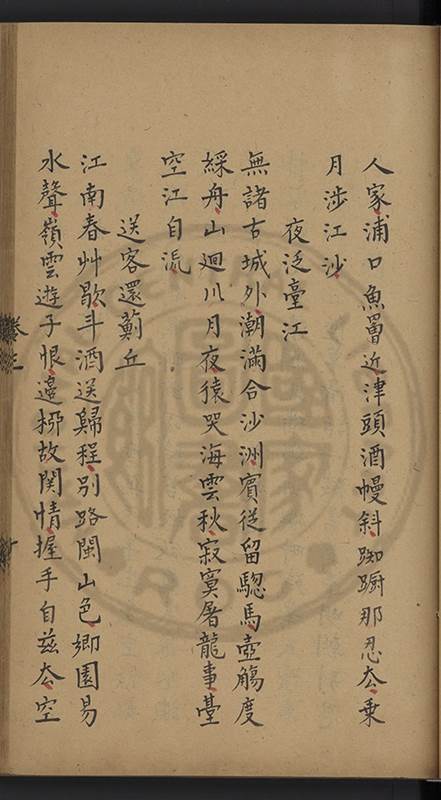 人家浦口魚罾近津頭酒幔斜踟蹰那忍厺乗
月涉江沙
夜泛臺江
無諸古城外潮滿合沙洲賓從留驄馬壺觴度
綵舟山迴川月夜猿哭海雲秋寂寞屠龍事臺
空江自流
送客還薊丘
江南春艸歇斗酒送歸程別路閩山色鄉園易
水聲嶺雲遊子恨邊桺故関情握手自兹厺空
卷三